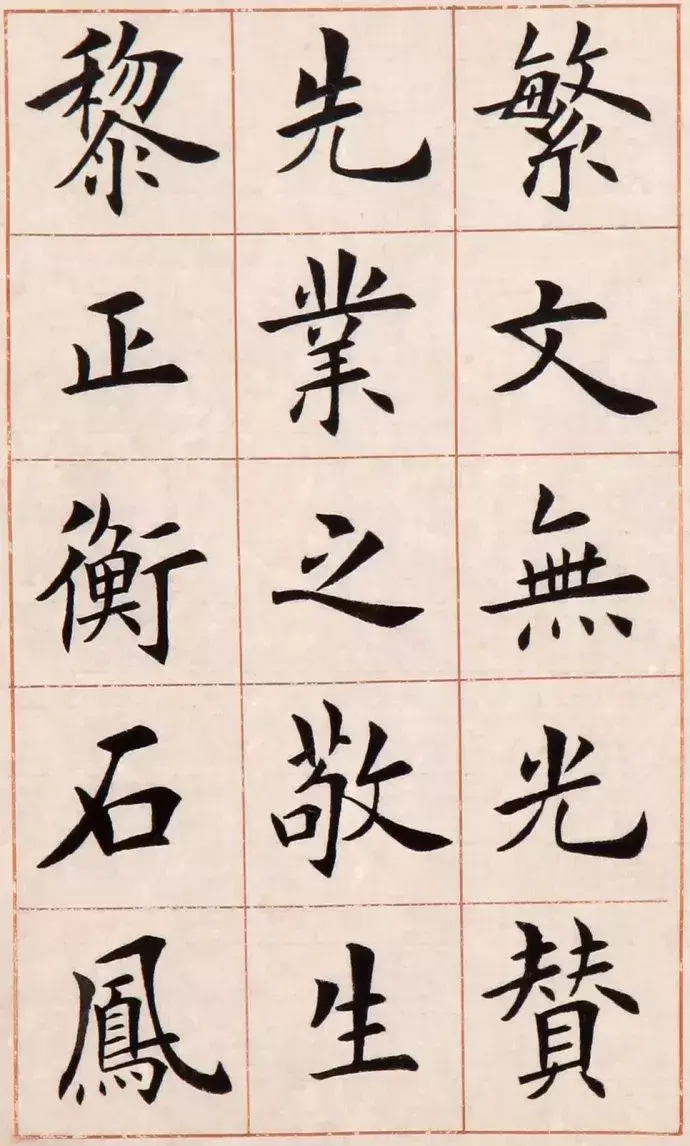 繁文無光贊
先業之敬生
黎正衡石鳳